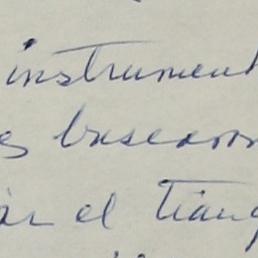 instrument
es buscaron
ar el triang